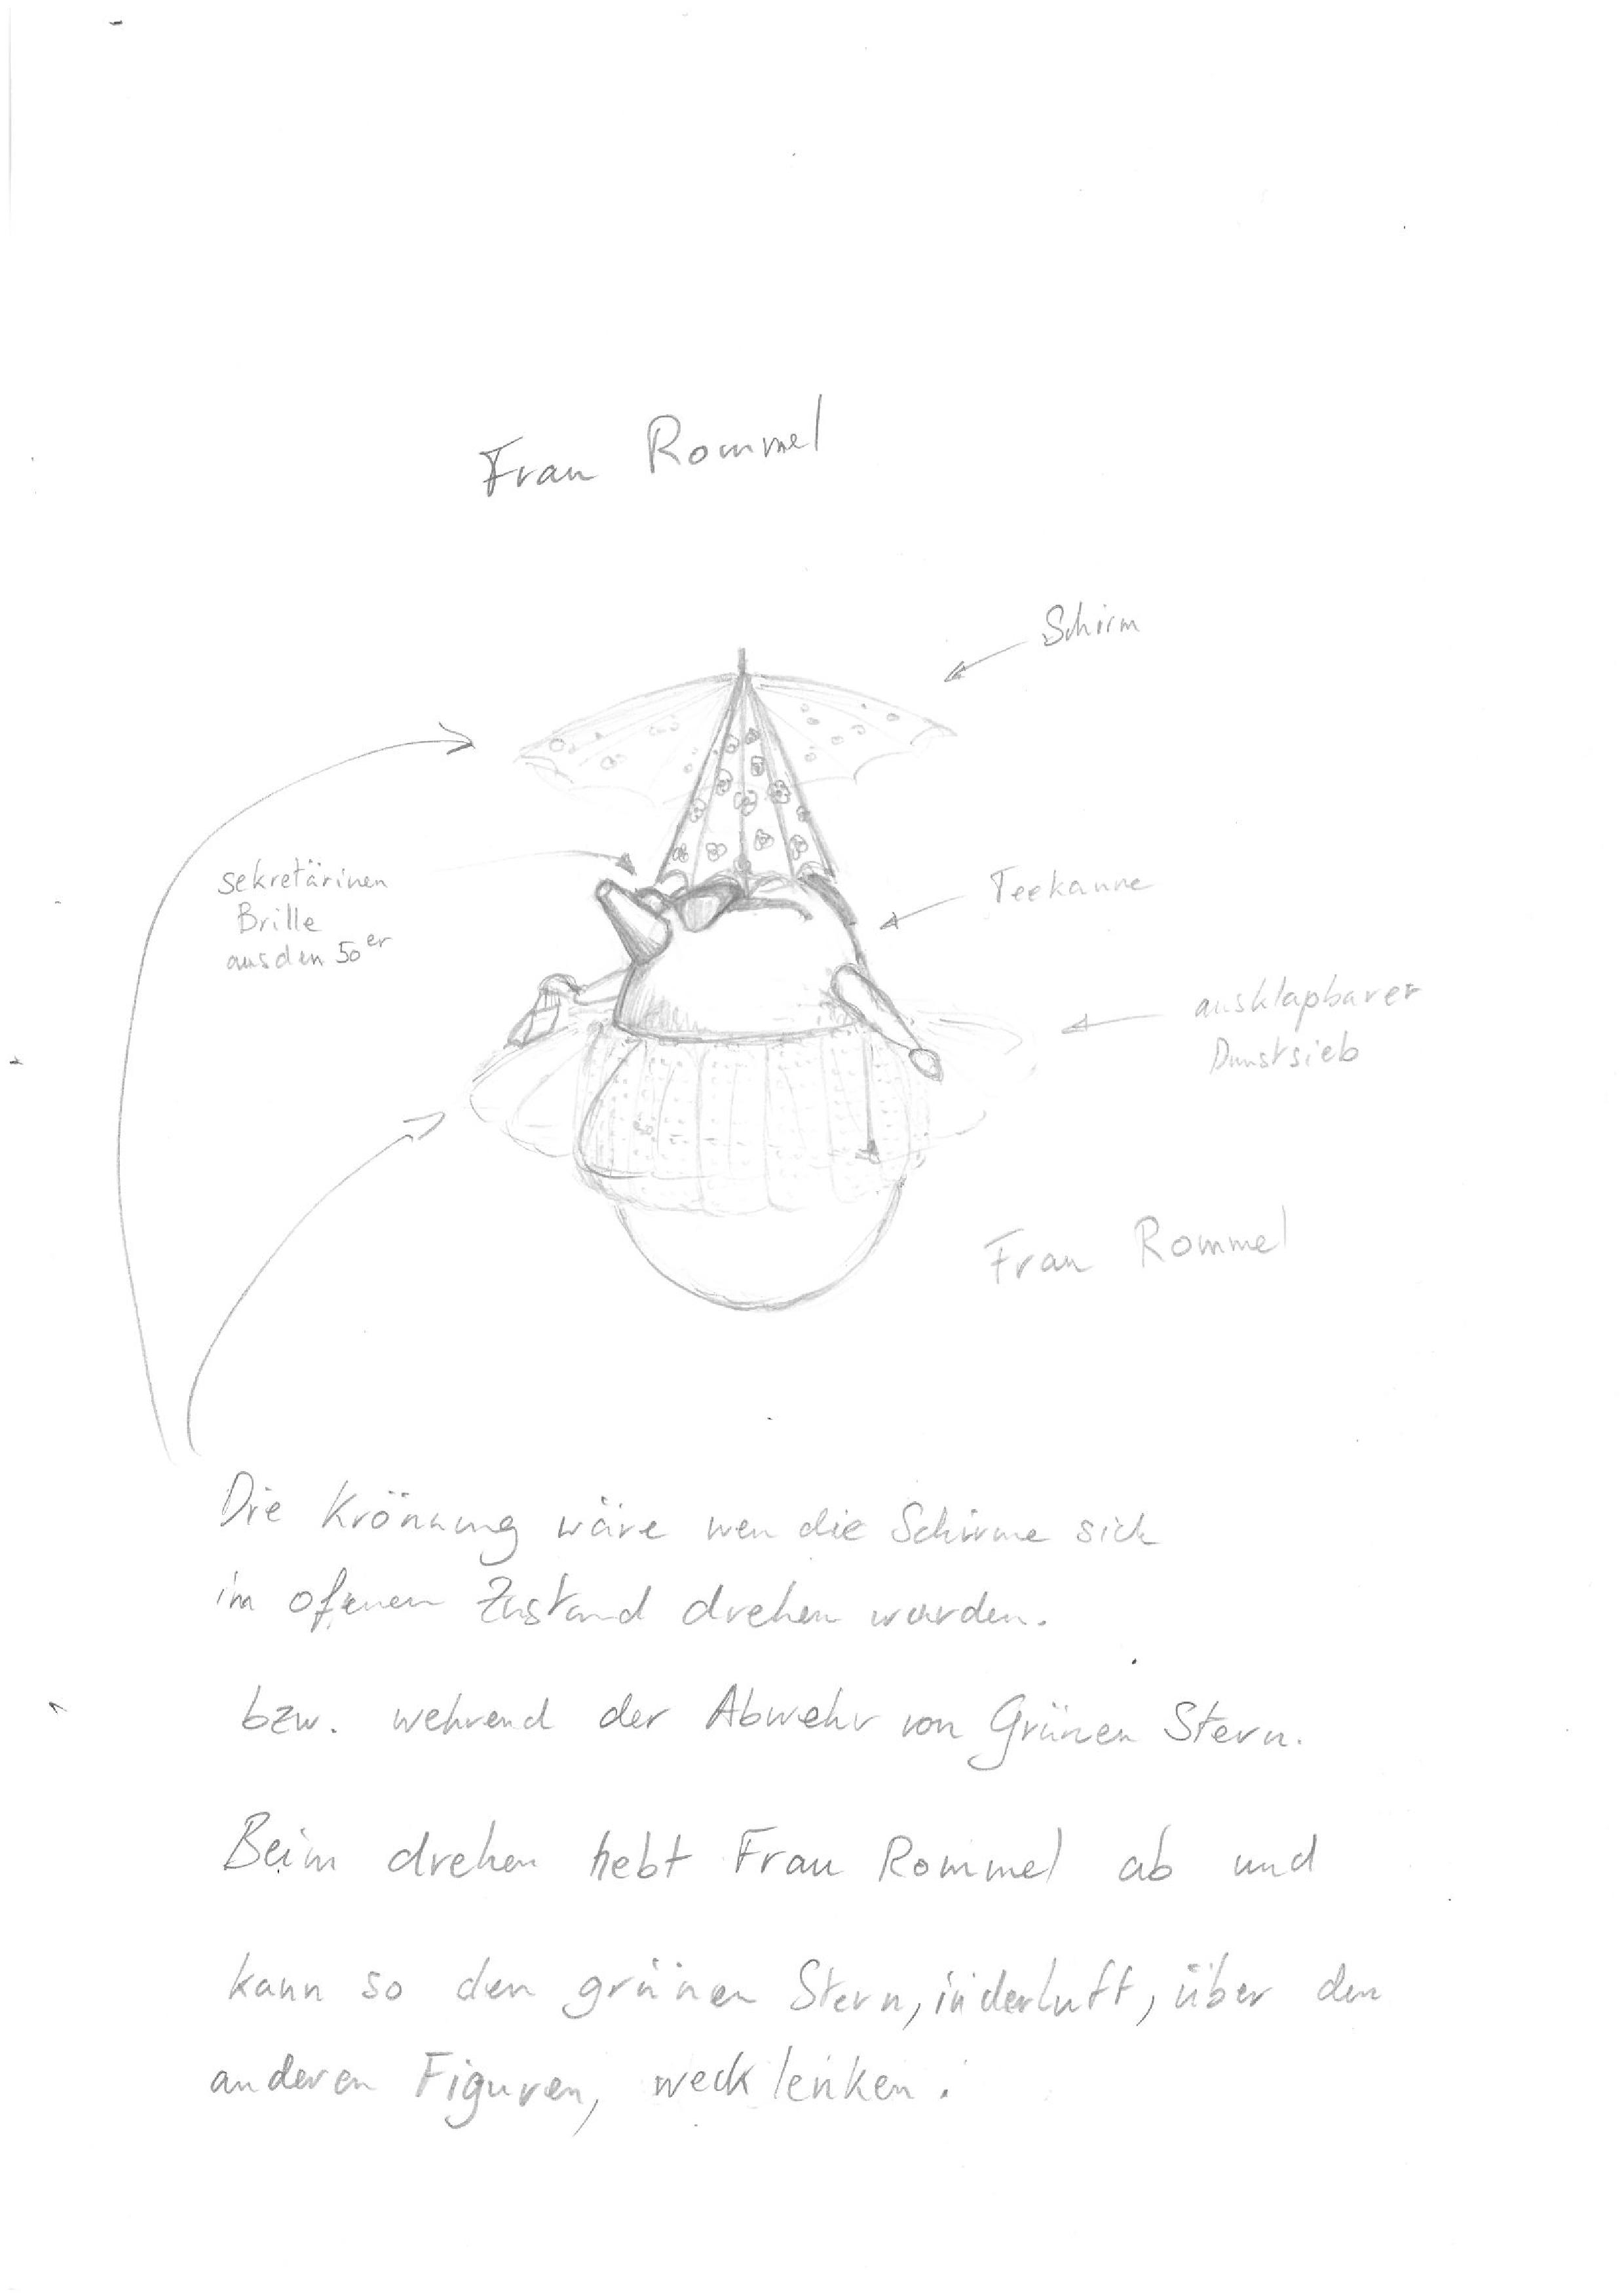 Frau Rommel
Schirm
sekretärinen
Brille
aus den 50er
Teekanne
ausklapbarer
Dunstsieb
Frau Rommel
Die Krönung wäre wen die Schirme sich
im ofenen Zustand drehen wurden.
bzw. wehrend der Abwehr von Grünen Stern.
Beim drehen hebt Frau Rommel ab und
kann so den grünen Stern, in der luft, über den
anderen Figuren, weck lenken.